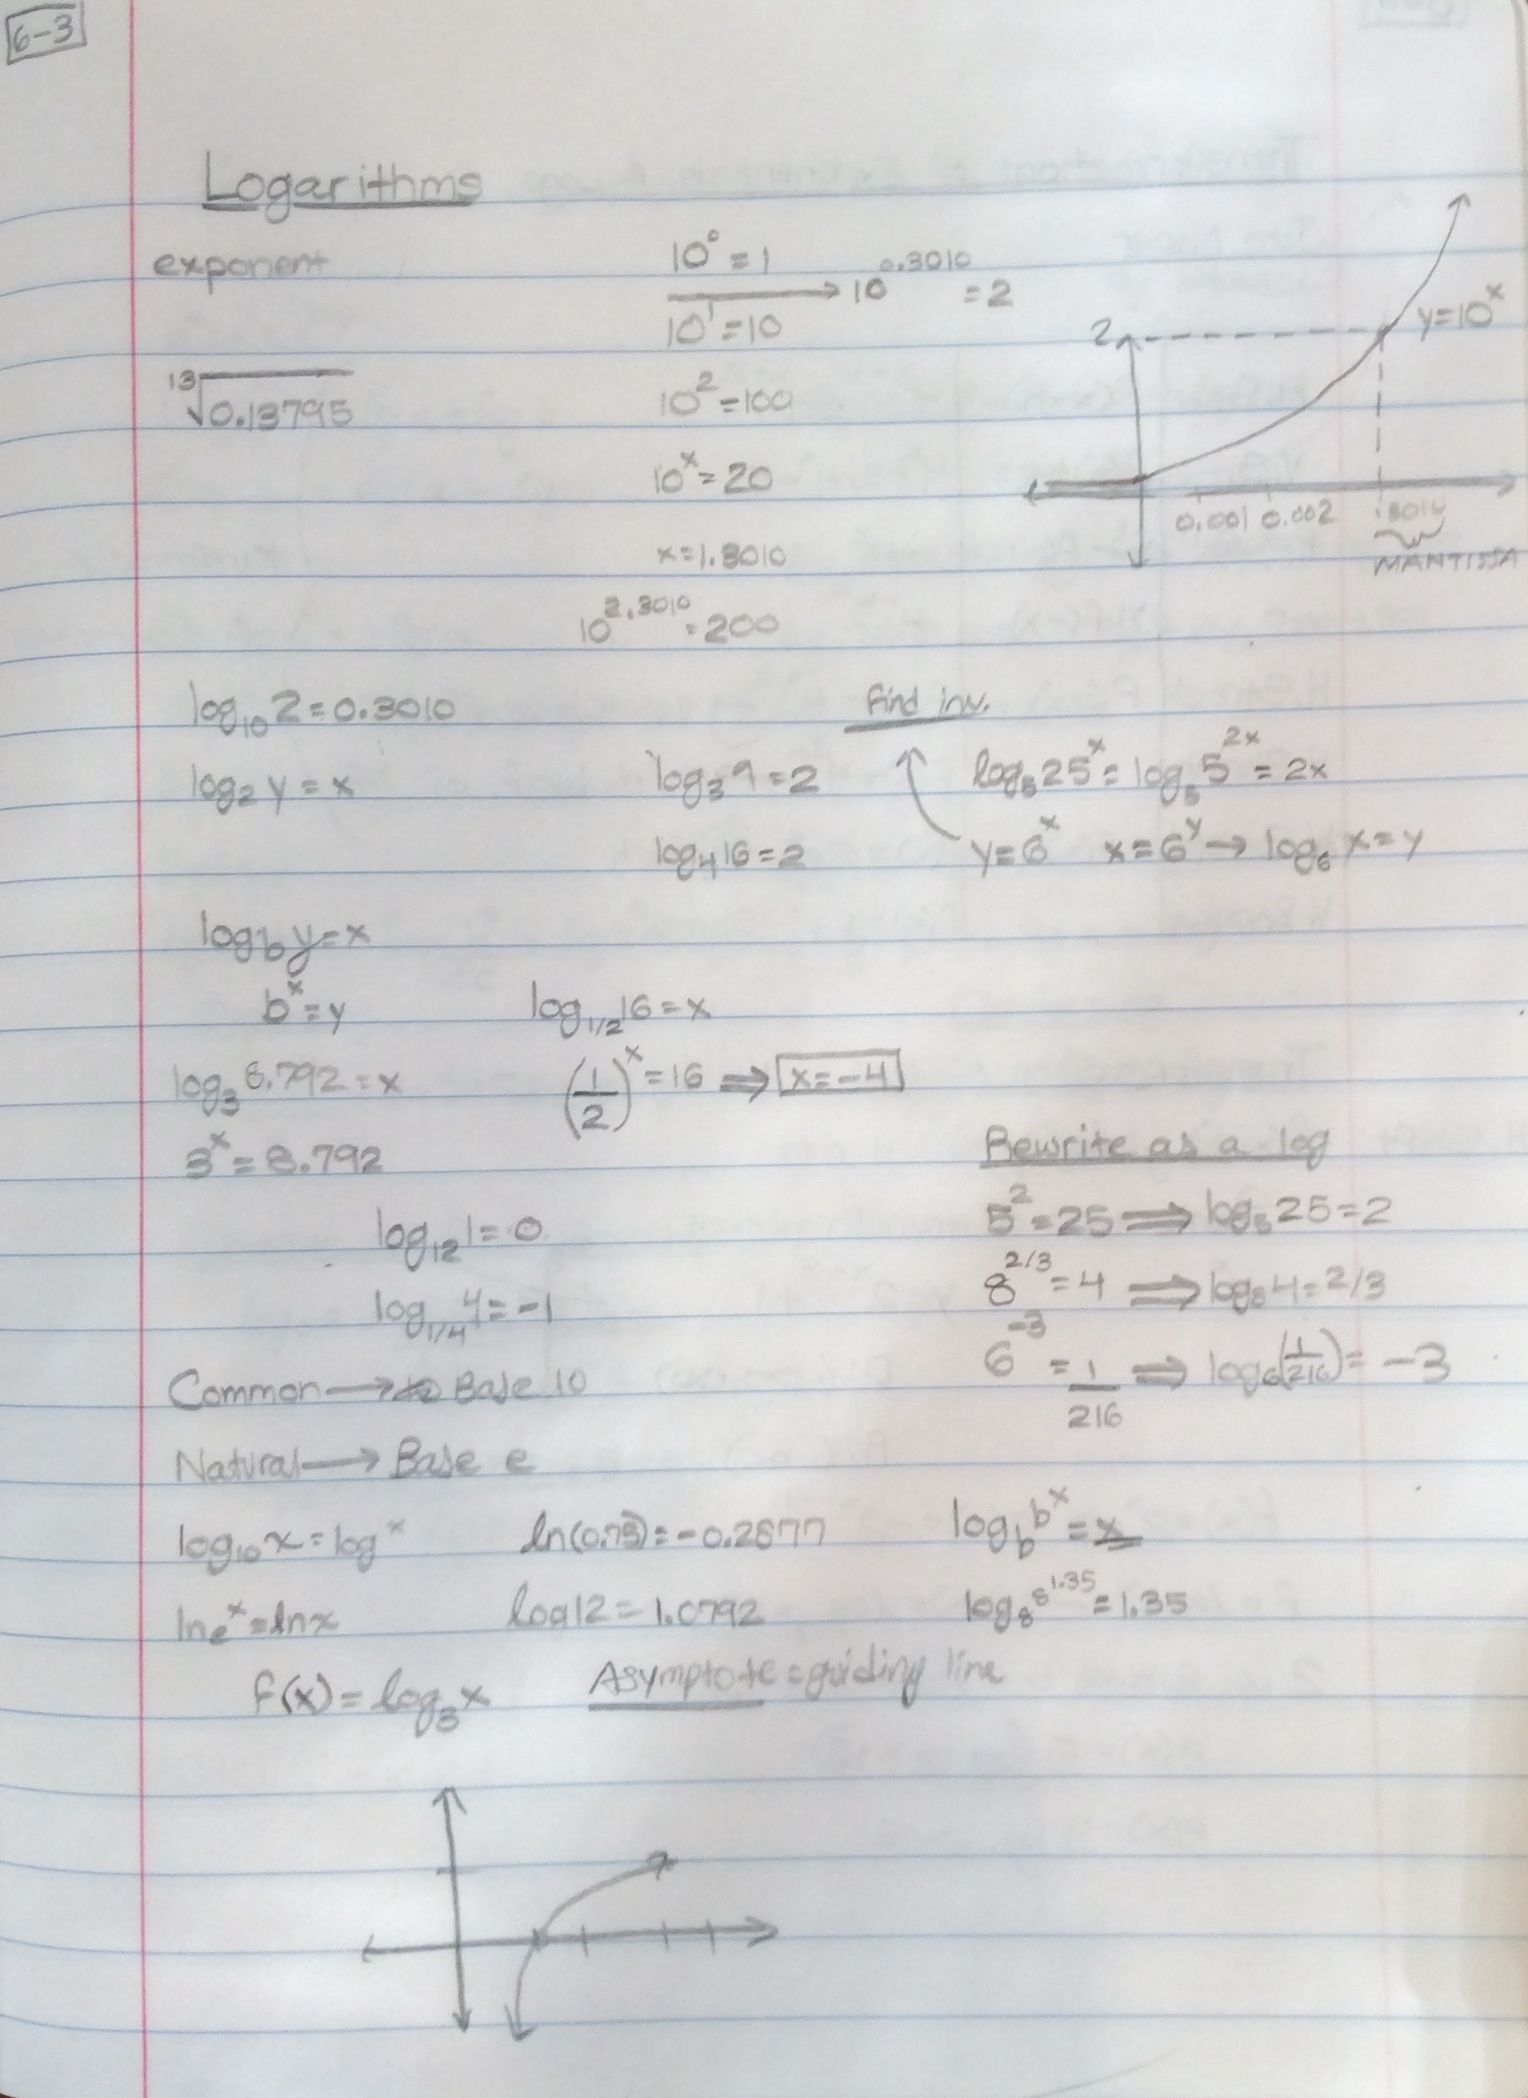 6-3
Logarithms
exponent
10⁰=1
10¹=10
10^0.3010 =2
¹³√0.13795
10²=100
10ˣ=20
x=1.3010
10^2.3010=200
2
y=10ˣ
0.001 0.002 .3010
MANTISSA
log₁₀2=0.3010
log₂y=x
log₃9=2
log₄16=2
Find inv.
log₅25ˣ=log₅5^2x=2x
y=6ˣ x=6ʸ→log₆x=y
log_b y=x
bˣ=y
log₃8.792=x
3ˣ=8.792
log_1/2 16=x
(1/2)ˣ=16 ⇒ x=-4
log₁₂1=0
log_1/4 4=-1
Rewrite as a log
5²=25⇒log₅25=2
8^2/3=4⇒log₈4=2/3
6^-3=1/216⇒log₆(1/216)=-3
Common→ Base 10
Natural→ Base e
log₁₀x=logˣ
ln(0.75)=-0.2877
log_b bˣ=x
ln_eˣ=lnx
log12=1.0792
log₈8^1.35=1.35
f(x)=log₃x
Asymptote=guiding line